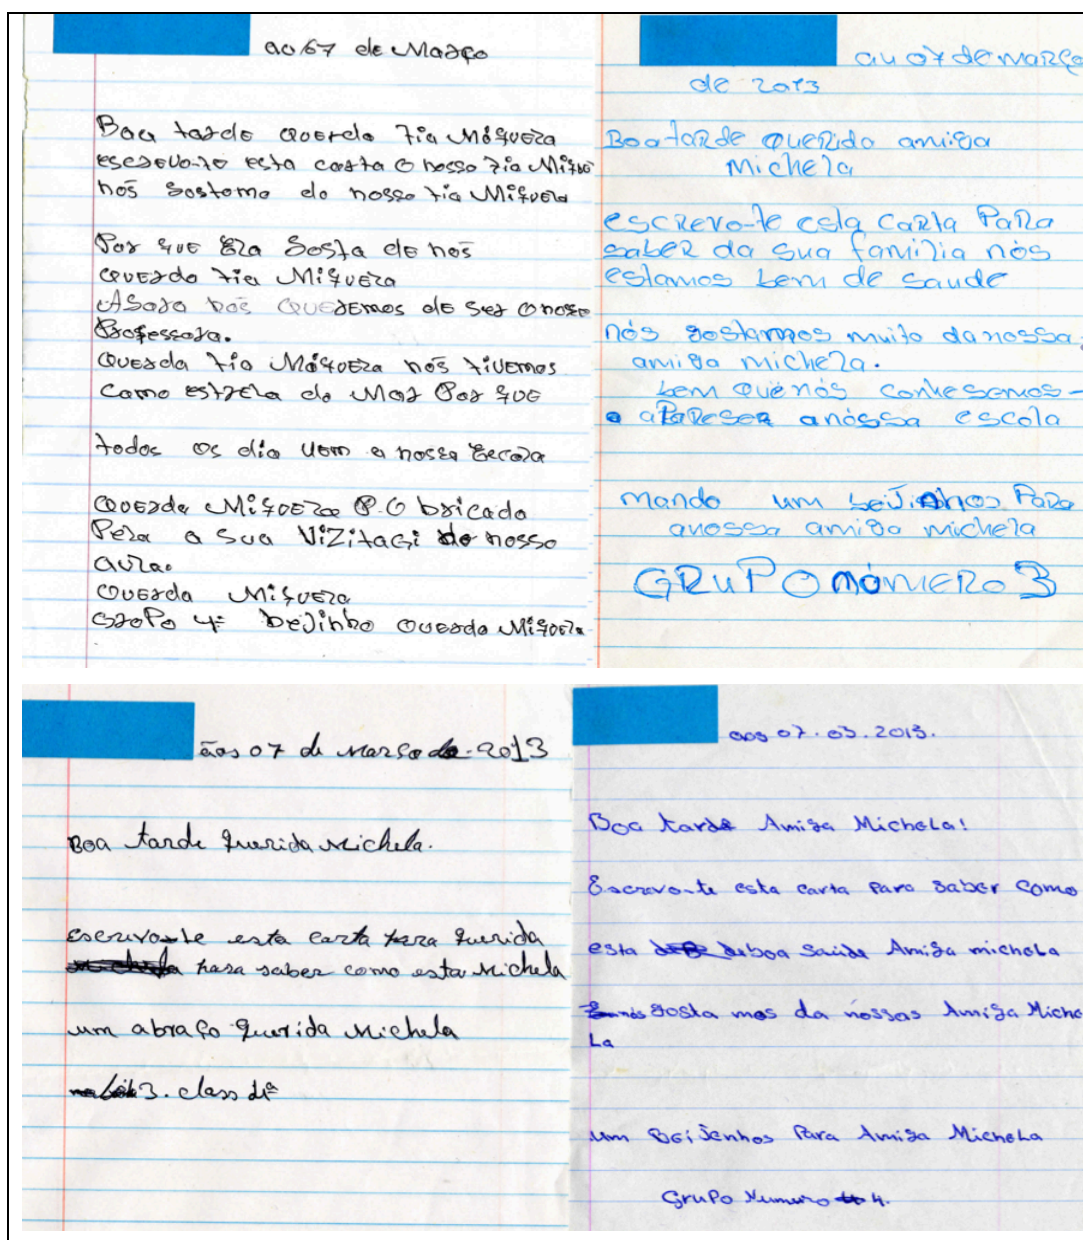 ao 67 de Março
Boa tarde querda tia Miquela
escrevo-te esta carta o nosso tia
nós gostomo do nosso tia Miquela
Por que Ela gosta de nós
querdo tia Miquela
Agora nós queremos de ser o nosso
Professora.
querda tia Miquela nós tivemos
como estrela do Mar Por que
todos os dia vem a nossa Escola
querda Miquela P.O bricado
Pela a sua Vizitaçi do nosso
aula.
querda Miquela
Gropo 4: beijinho querda Miquela
au 07 de março
de 2013
Boa tarde querida amiga
Michela
escrevo-te esta carta Para
saber da sua familia nós
estamos bem de saude
nós gostamos muito da nossa
amiga michela.
bem que nós conhesemos-
a aPareser a nóssa escola
mando um beijinhos Para
a nossa amiga michela
GRUPO NÓMERO 3
ãos 07 de março de 2013
Boa tarde querida Michela.
escrivo-te esta carta para querida
para saber como esta Michela
um abraço querida Michela
3. class dª
aos 07.03.2013.
Boa tarde Amiga Michela!
Escrevo-te esta carta Para saber como
esta deboa saúde Amiga michela
nós gosta mos da nóssas Amiga Miche
La
um Beijenhos Para Amiga Michela
Grupo Numero 4.